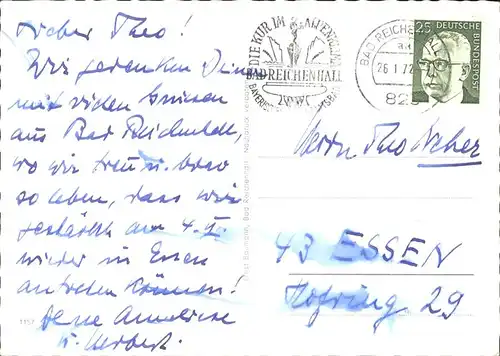 Lieber Theo!
Wir gedenken Dein
mit vielen Grüssen
aus Bad Reichenhall,
wo wir treu u. brav
so leben, dass wir
gestärkt am 4. II.
wieder in Essen
antreten können!
Deine Anneliese
u. Herbert.
DIE KUR IM ALPENKLIMA
BAD REICHENHALL
BAYERISCHES
BAD REICHENHALL
26.1.72
823
25 DEUTSCHE
BUNDESPOST
Herrn Theo
43 ESSEN
Hofring 29
Bad Reichenhall